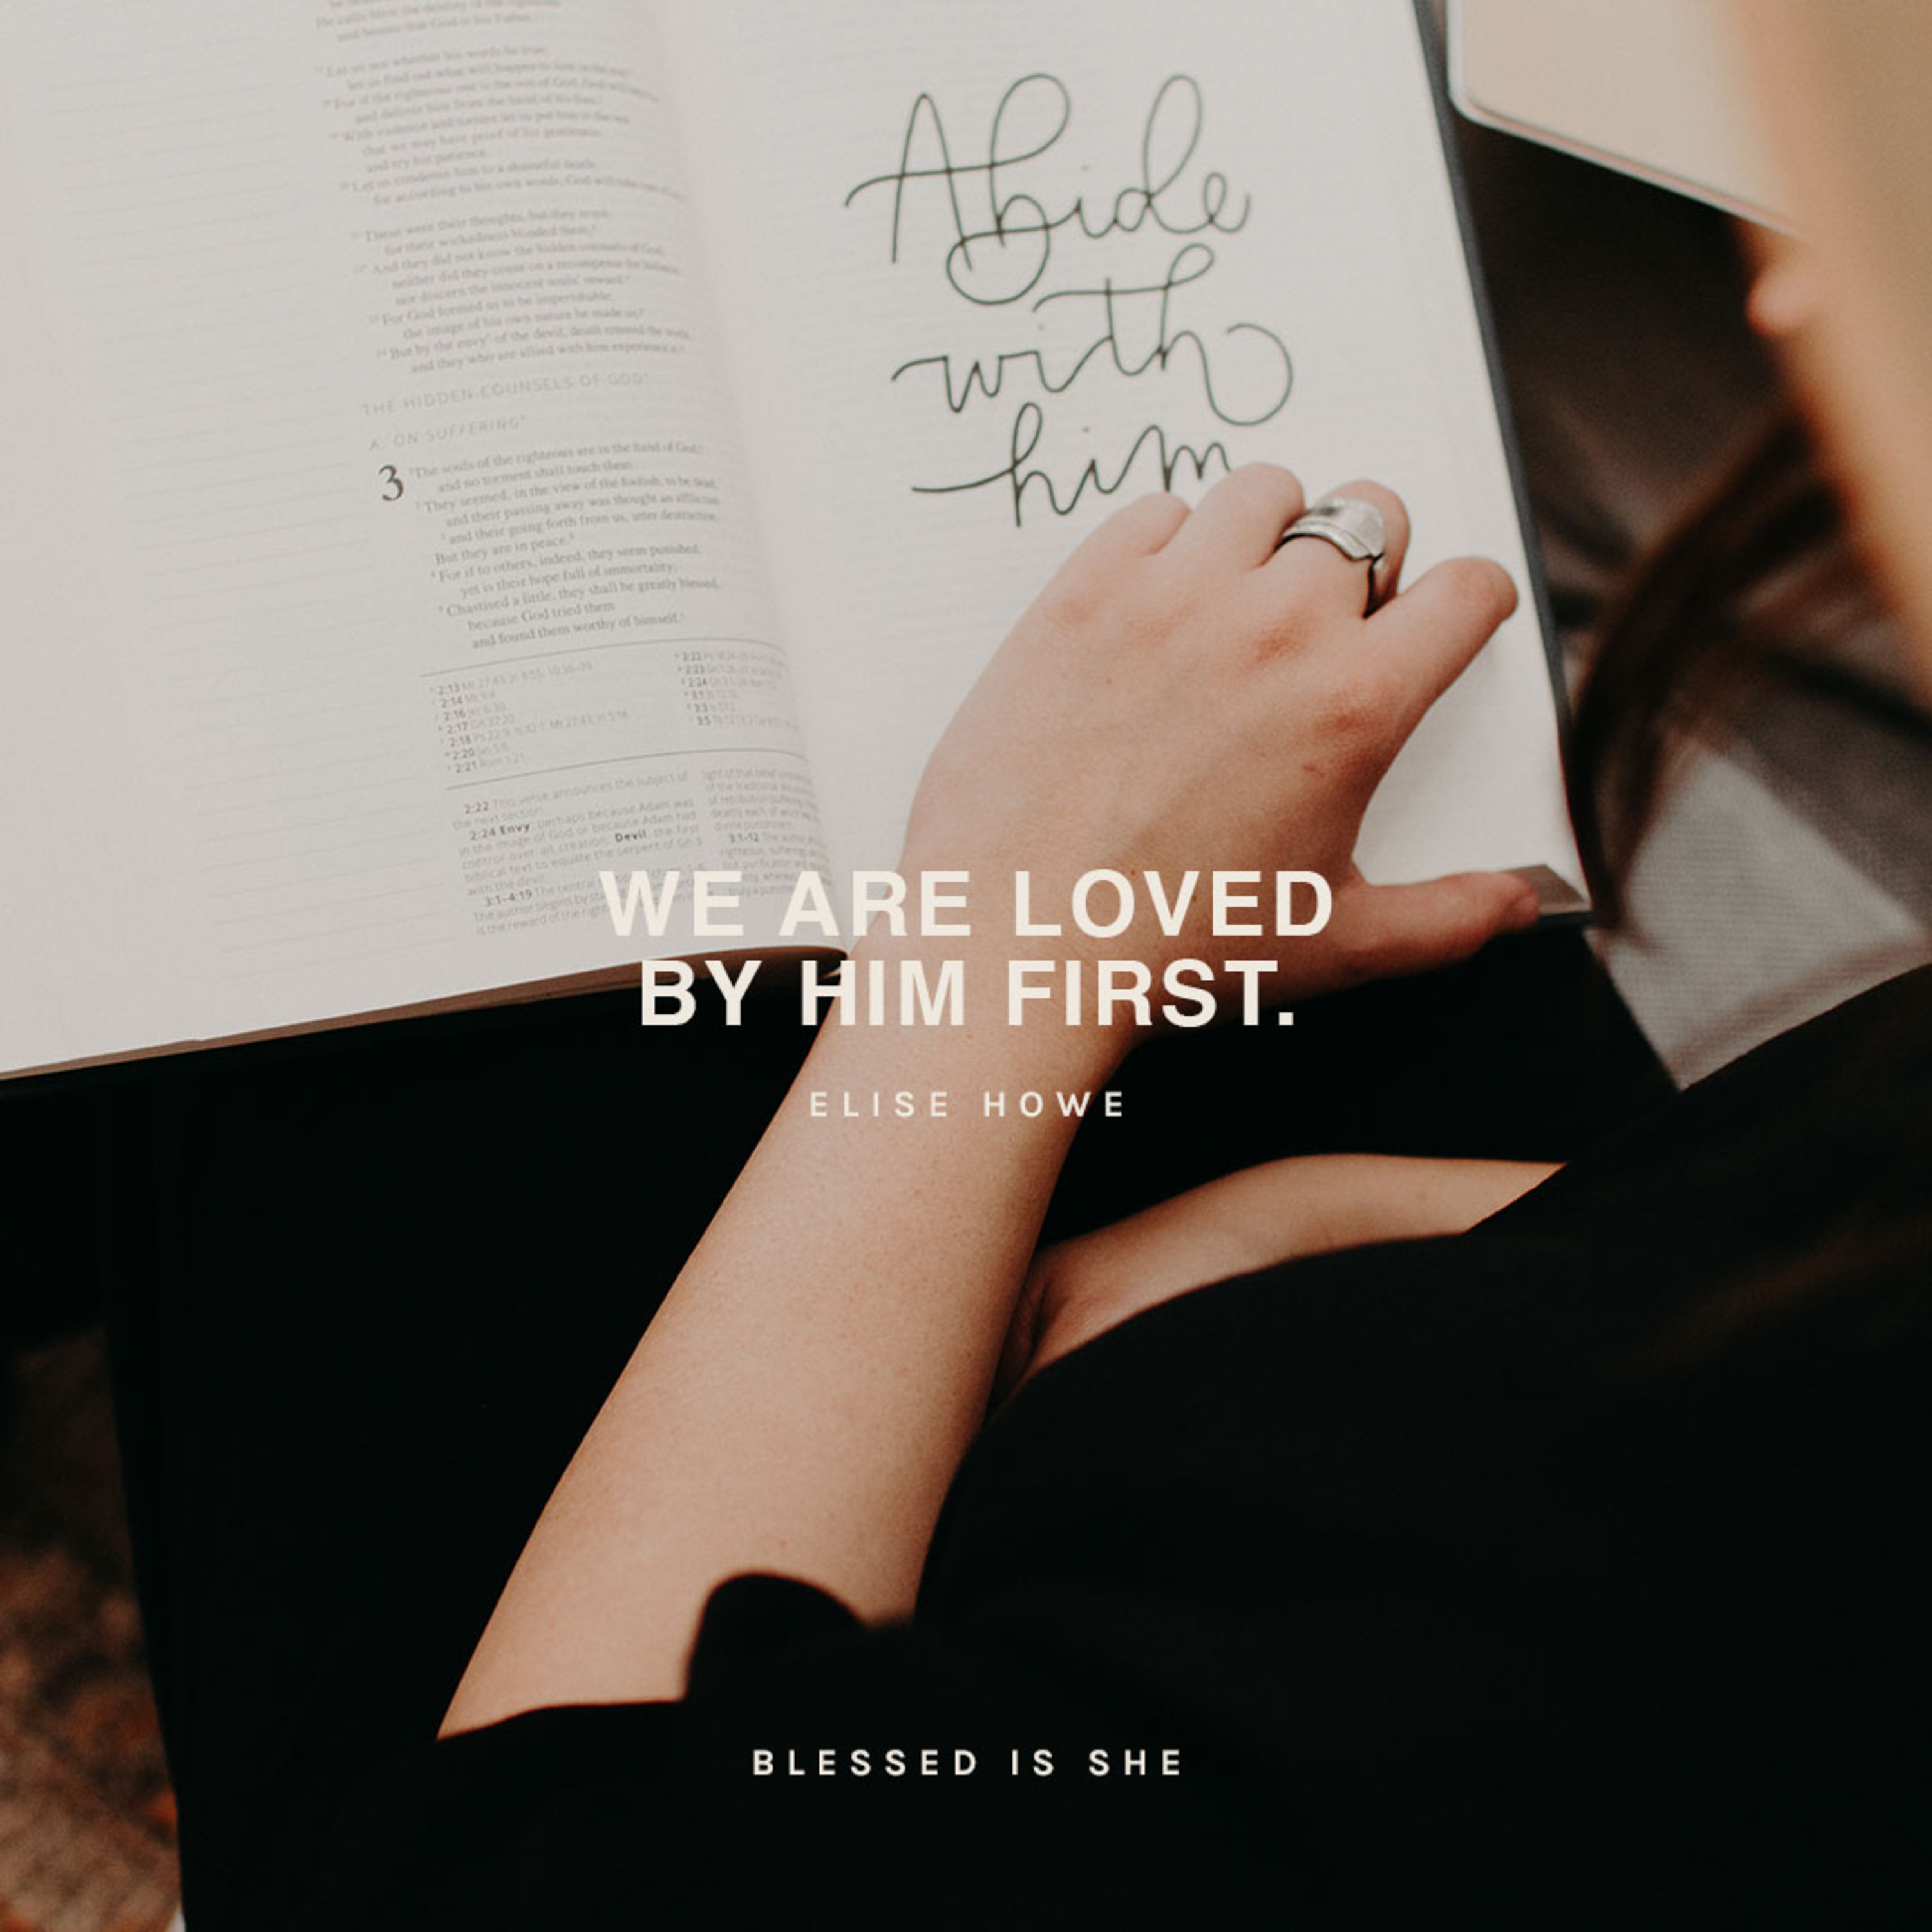 He calls blest the destiny of the righteous
and boasts that God is his Father.
Let us see whether his words be true;
let us find out what will happen to him in the end.
For if the righteous one is the son of God, God will
and deliver him from the hand of his foes.
With violence and torture let us put him to the test
that we may have proof of his gentleness
and try his patience.
Let us condemn him to a shameful death;
for according to his own words, God will take care of him.
These were their thoughts, but they erred;
for their wickedness blinded them,
And they did not know the hidden counsels of God;
neither did they count on a recompense for holiness
nor discern the innocent souls' reward.
For God formed us to be imperishable;
the image of his own nature he made us.
But by the envy of the devil, death entered the world,
and they who are allied with him experience it.
THE HIDDEN COUNSELS OF GOD*
A. ON SUFFERING*
3 The souls of the righteous are in the hand of God,
and no torment shall touch them.
They seemed, in the view of the foolish, to be dead;
and their passing away was thought an affliction
and their going forth from us, utter destruction.
But they are in peace.
For if to others, indeed, they seem punished,
yet is their hope full of immortality;
Chastised a little, they shall be greatly blessed,
because God tried them
and found them worthy of himself.
2:22 This verse announces the subject of
the next section.
2:24 Envy: perhaps because Adam was
in the image of God or because Adam had
control over all creation. Devil: the first
biblical text to equate the serpent of Gn 3
with the devil.
Abide
with
him
WE ARE LOVED
BY HIM FIRST.
ELISE HOWE
BLESSED IS SHE